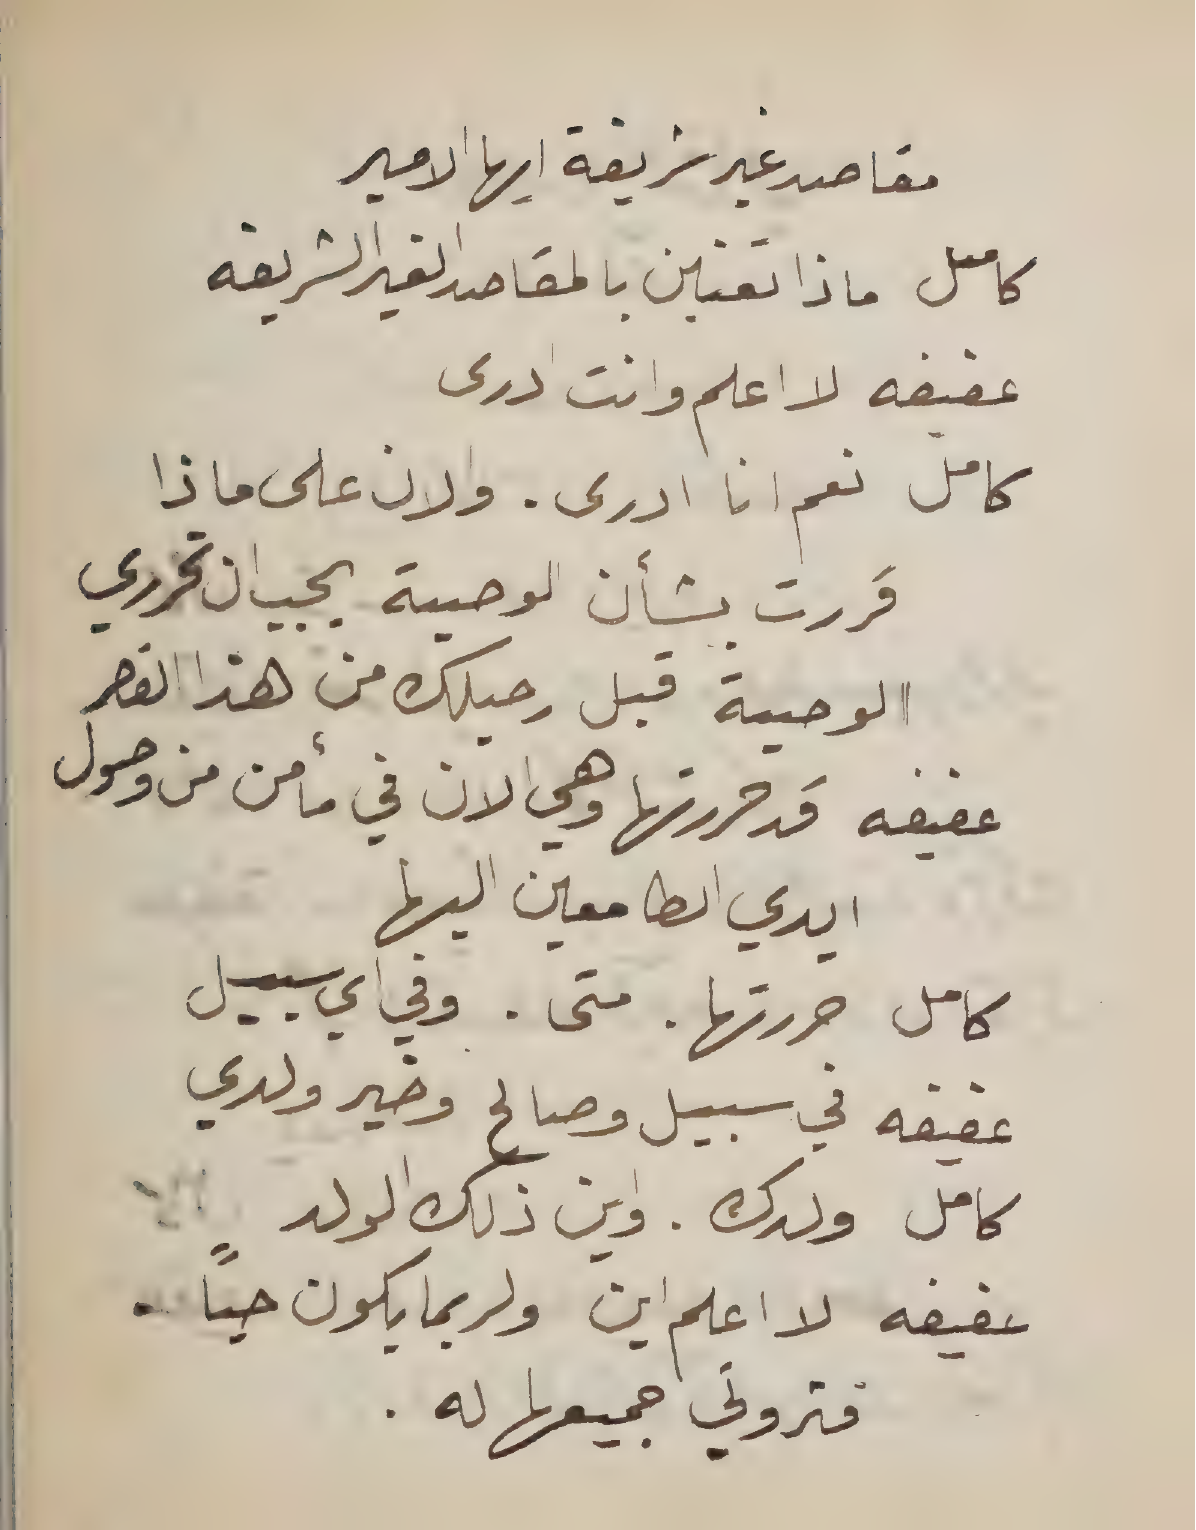 مقاصد غير شريفة ايها الامير
كامل ماذا تعنين بالمقاصد الغير الشريفه
عفيفه لا اعلم وانت ادرى
كامل نعم انا ادرى . والان على ماذا
قررت بشأن الوصية يجب ان تحرري
الوصية قبل رحيلك من هذا القصر
عفيفه قد حررتها وهي الان في مأمن من وصول
ايدي الطامعين اليها
كامل حررتها . متى . وفي اي سبيل
عفيفه في سبيل وصالح وخير ولدي
كامل ولدك . واين ذلك الولد
عفيفه لا اعلم اين ولربما يكون حياً .
فثروتي جميعها له .